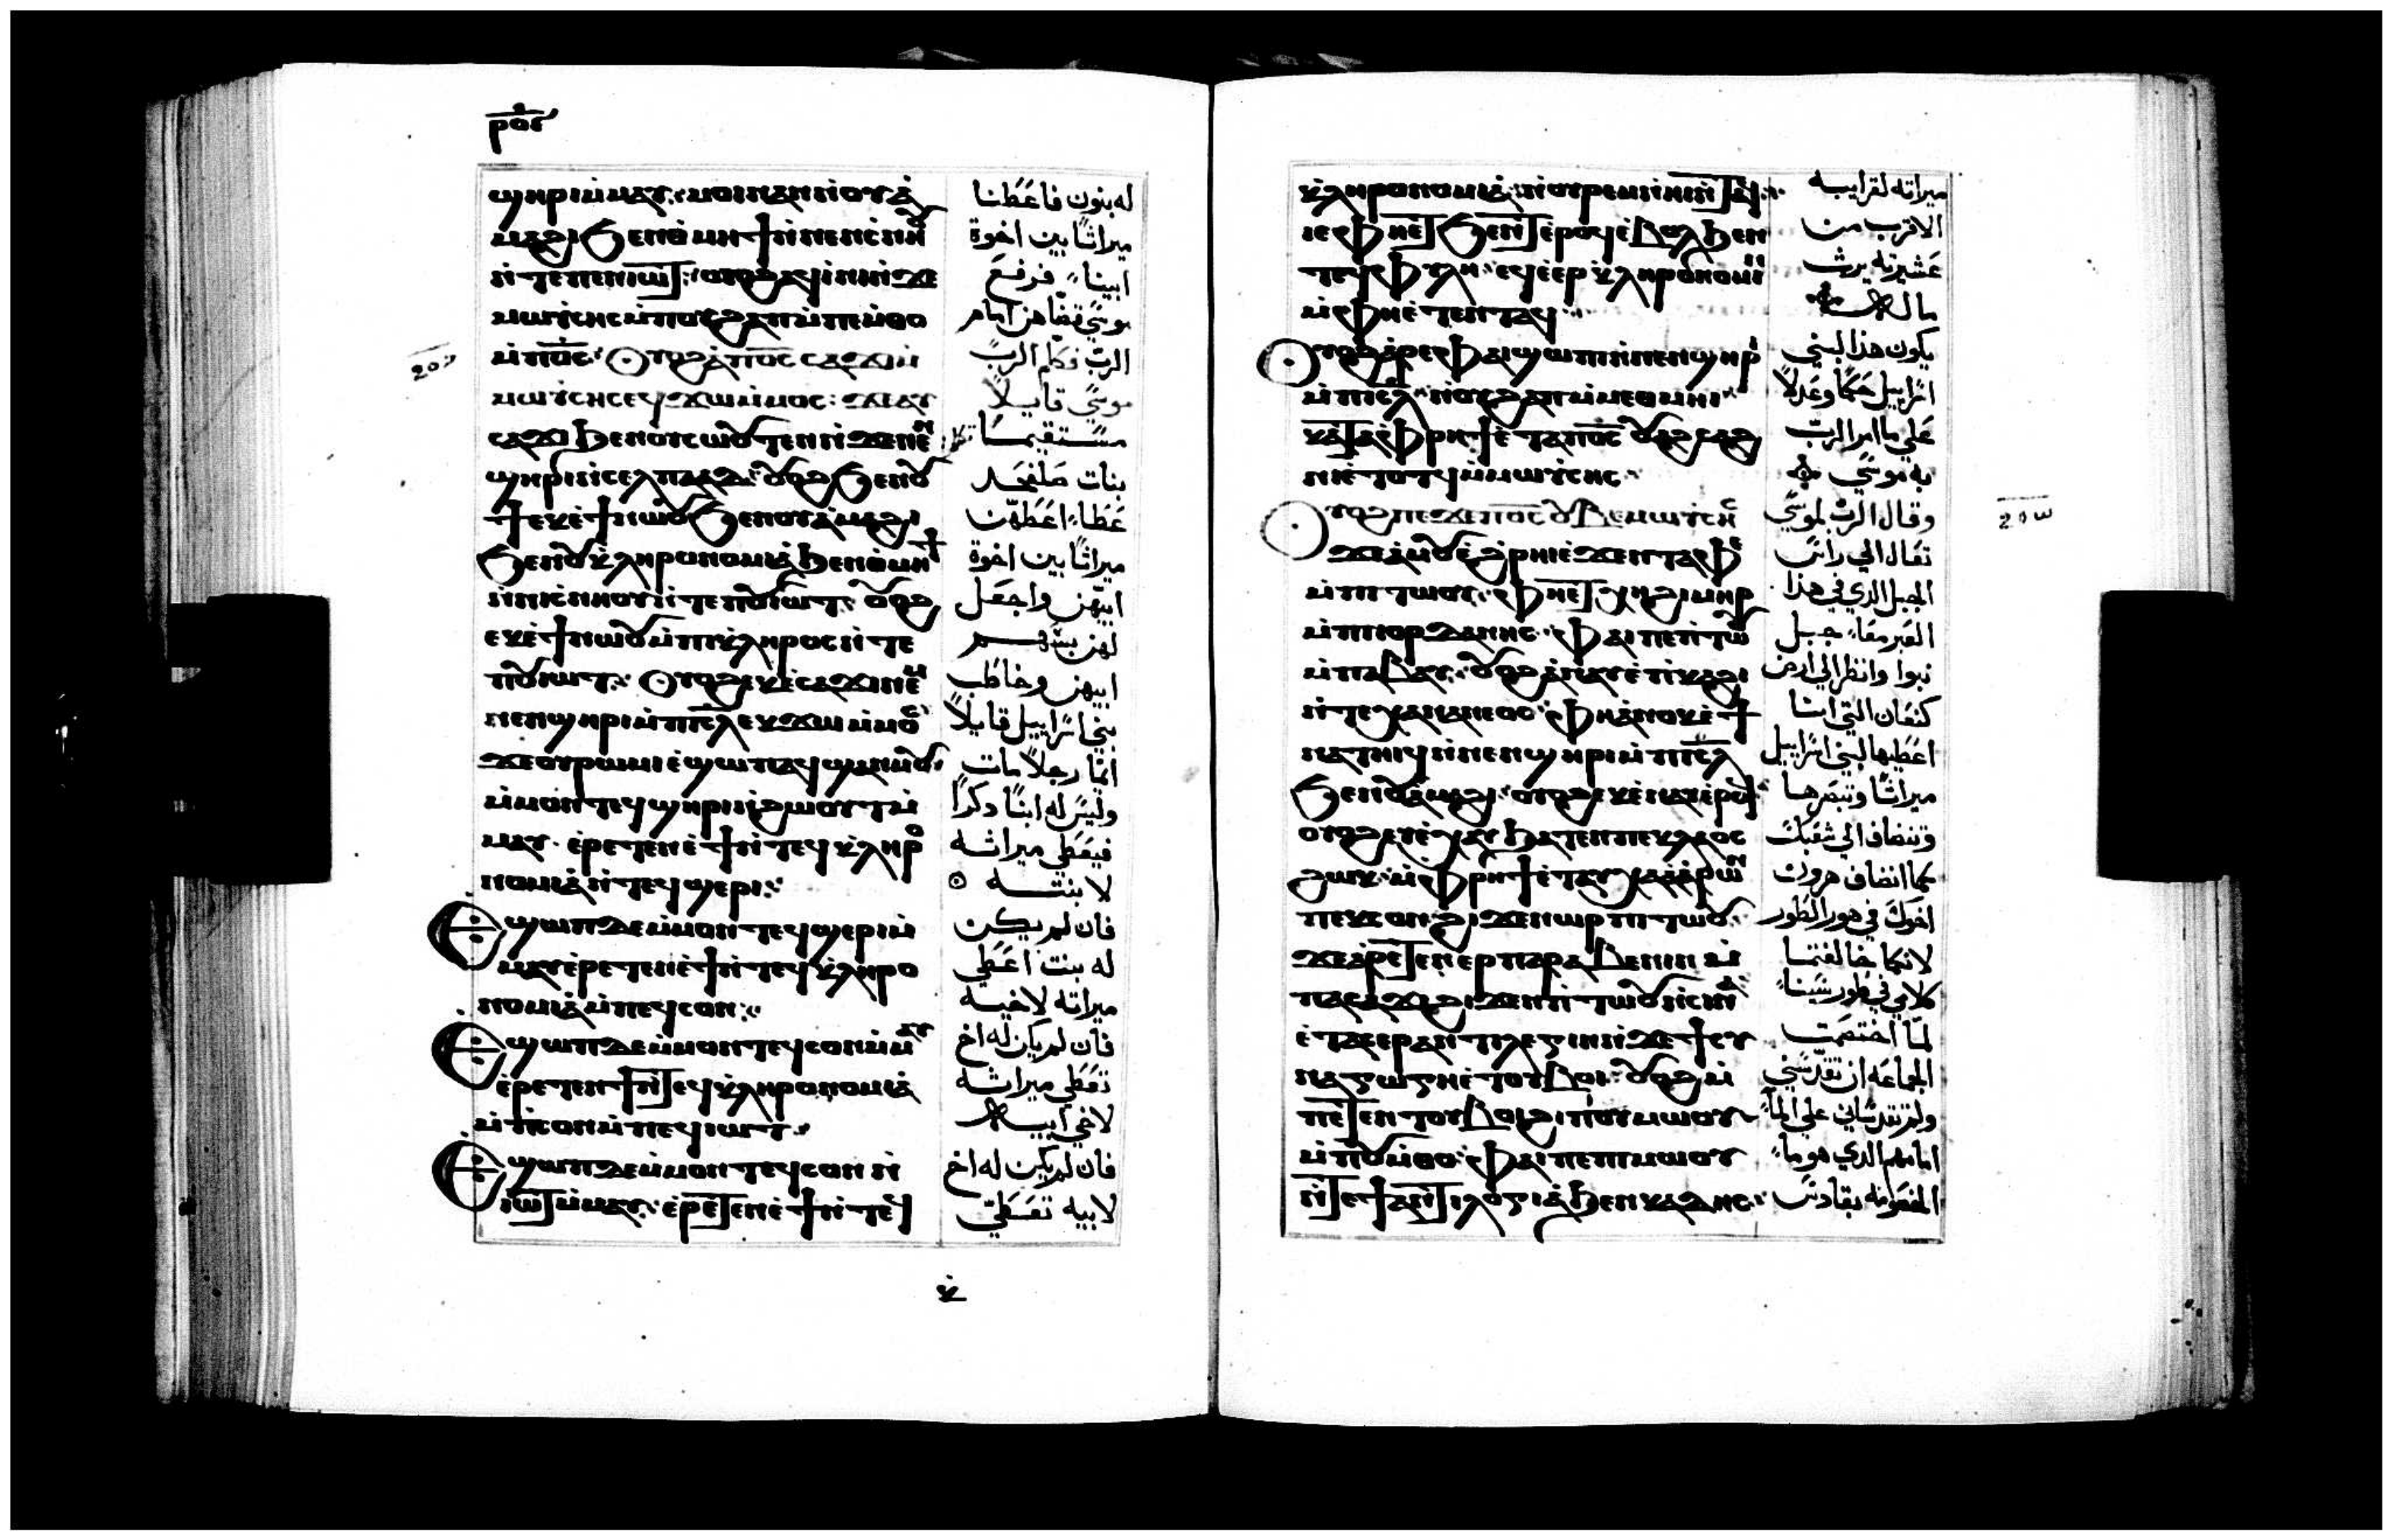 ⲣⲟⲋ
ϣⲏⲣⲓ ⲙ̇ⲙⲁⲩ: ⲙⲟⲓ ⲛⲁⲛ ⲛ̇ⲟⲩⲁ̇
ⲙⲁϩⲓ ϧⲉⲛ ⲑ̇ⲙⲏϯ ⲛ̇ⲛⲉⲛⲥ̇ⲛⲏⲟⲩ
ⲛ̇ⲧⲉ ⲡⲉⲛⲓⲱⲧ: ⲟⲩⲟϩ ⲁϥⲓ̇ⲛⲓ ⲛ̇ϫⲉ
ⲙⲱⲩ̇ⲥⲏⲥ ⲙ̇ⲡⲟⲩϩⲁⲡ ⲙ̇ⲡⲉⲙ̇ⲑⲟ
ⲙ̇ⲡⲟ̅ⲥ̅: ⲟⲩⲟϩ ⲁ̇ⲡⲟ̅ⲥ̅ ⲥⲁϫⲓ ⲛ̇
ⲙⲱⲩ̇ⲥⲏⲥ ⲉϥϫⲱ ⲙ̇ⲙⲟⲥ:
ⲥⲁϫⲓ ϧⲉⲛ ⲟⲩⲥⲱⲟⲩⲧⲉⲛ ⲛ̇ϫⲉ ⲛⲉⲛ
ϣⲏⲣⲓ ⲛ̇ⲥⲉⲗⲡⲁⲁϫ: ⲟⲩⲟϩ ϧⲉⲛ ⲟⲩ
ϯ ⲉⲕⲉ̇ϯ ⲛⲱⲟⲩ ϧⲉⲛ ⲟⲩⲁ̇ⲙⲁϩⲓ
ϧⲉⲛ ⲟⲩⲕ̇ⲗⲏⲣⲟⲛⲟⲙⲓⲁ̇ ϧⲉⲛ ⲑ̇ⲙⲏϯ
ⲛ̇ⲛⲓⲥ̇ⲛⲏⲟⲩ ⲛ̇ⲧⲉ ⲡⲟⲩⲓⲱⲧ: ⲟⲩⲟϩ
ⲉⲕⲉ̇ϯ ⲛⲱⲟⲩ ⲙ̇ⲡⲓⲕ̇ⲗⲏⲣⲟⲥ ⲛ̇ⲧⲉ
ⲡⲟⲩⲓⲱⲧ: ⲟⲩⲟϩ ⲉⲕⲉ̇ⲥⲁϫⲓ ⲛⲉⲙ
ⲛⲉⲛϣⲏⲣⲓ ⲙ̇ⲡⲓⲥ̅ⲗ̅ ⲉⲕϫⲱ ⲙ̇ⲙⲟⲥ
ϫⲉ ⲟⲩⲣⲱⲙⲓ ⲉ̇ϣⲱⲡ ⲁϥϣⲁⲛⲙⲟⲩ:
ⲙ̇ⲙⲟⲛⲧⲉϥ ϣⲏⲣⲓ ⲛ̇ϩⲱⲟⲩⲧ ⲙ̇
ⲙⲁⲩ: ⲉ̇ⲣⲉⲧⲉⲛⲉ̇ϯ ⲛ̇ⲧⲉϥⲕ̇ⲗⲏⲣⲟ
ⲛⲟⲙⲓⲁ̇ ⲛ̇ⲧⲉϥϣⲉⲣⲓ:
ⲉϣⲱⲡ ⲇⲉ ⲙ̇ⲙⲟⲛⲧⲉϥ ϣⲉⲣⲓ ⲙ̇
ⲙⲁⲩ ⲉ̇ⲣⲉⲧⲉⲛⲉ̇ϯ ⲛ̇ⲧⲉϥⲕ̇ⲗⲏⲣⲟ
ⲛⲟⲙⲓⲁ̇ ⲙ̇ⲡⲉϥⲥⲟⲛ:
ⲉϣⲱⲡ ⲇⲉ ⲙ̇ⲙⲟⲛⲧⲉϥ ⲥⲟⲛ ⲙ̇ⲙⲁⲩ
ⲉ̇ⲣⲉⲧⲉⲛϯ ⲛ̇ⲧⲉϥⲕ̇ⲗⲏⲣⲟⲛⲟⲙⲓⲁ̇
ⲙ̇ⲡⲥⲟⲛ ⲙ̇ⲡⲉϥⲓⲱⲧ:
ⲉϣⲱⲡ ⲇⲉ ⲙ̇ⲙⲟⲛⲧⲉϥ ⲥⲟⲛ ⲛ̇
ⲓⲱⲧ ⲙ̇ⲙⲁⲩ: ⲉ̇ⲣⲉⲧⲉⲛⲉ̇ϯ ⲛ̇ⲧⲉϥ
له بنون فاعَطَنا
ميراثًا بين اخوة
ابينا فرفعَ
موسَي قضاهن امام
الربّ فكلم الربّ
موسَي قايلاً
مستقيمًا
بنات صَلفحَد
عَطا اعَطهّن
ميراثًا بين اخوة
ابيّهن واجعَل
لهن سَهم
ابيهن وخاطَب
بني اسَراييل قايلاً
انمّا رجلاً مات
وليسَ له ابنًا دكرًا
فيعَطي ميراثه
لابنته
فان لم يكن
له بنت اعَطي
ميراثه لاخيه
فان لم يكن له اخ
تعَطي ميراثه
لاخي ابيه
فان لم يكن له اخ
لابيه تعَطي
ⲕ̇ⲗⲏⲣⲟⲛⲟⲙⲓⲁ̇ ⲛ̇ⲟⲩⲣⲉⲙⲛ̇ⲏⲓ ⲛ̇ⲧⲁϥ:
ⲓⲉ ⲫⲏⲉⲧϧⲉⲛⲧ ⲉ̇ⲣⲟϥ ⲉ̇ⲃⲟⲗ ϧⲉⲛ
ⲧⲉϥⲫⲩⲗⲏ: ⲉϥⲉ̇ⲉⲣⲕ̇ⲗⲏⲣⲟⲛⲟⲙⲓⲛ
ⲙ̇ⲫⲏⲉ̇ⲧⲉⲛⲧⲁϥ:
ⲟⲩⲟϩ ⲉ̇ⲣⲉ ⲫⲁⲓ ϣⲱⲡⲓ ⲛ̇ⲛⲉⲛϣⲏⲣⲓ
ⲙ̇ⲡⲓⲥ̅ⲗ̅: ⲛ̇ⲟⲩϩⲁⲡ ⲙ̇ⲙⲉⲑⲙⲏⲓ:
ⲕⲁⲧⲁ ⲫ̇ⲣⲏϯ ⲉ̇ⲧⲁ ⲡⲟ̅ⲥ̅ ⲟⲩⲁϩⲥⲁϩ
ⲛⲓ ⲉ̇ⲧⲟⲧϥ ⲙ̇ⲙⲱⲩ̇ⲥⲏⲥ:
ⲟⲩⲟϩ ⲡⲉϫⲉ ⲡⲟ̅ⲥ̅ ⲟⲩⲃⲉ ⲙⲱⲩ̇ⲥⲏⲥ
ϫⲉ ⲁ̇ⲙⲟⲩ ⲉ̇ϩ̇ⲣⲏⲓ ⲉ̇ϫⲉⲛ ⲧⲁⲫⲉ
ⲙ̇ⲡⲓⲧⲱⲟⲩ: ⲫⲏⲉⲧⲭⲏ ϩⲓⲙⲏⲣ
ⲙ̇ⲡⲓⲟⲣⲇⲁⲛⲏⲥ: ⲫⲁⲓ ⲡⲉ ⲡⲓⲧⲱⲟⲩ
ⲙ̇ⲡⲁⲃⲁⲩ: ⲟⲩⲟϩ ⲁ̇ⲛⲁⲩ ⲉ̇ⲡⲓⲕⲁϩⲓ
ⲛ̇ⲧⲉ ⲭⲁⲛⲁⲛⲉⲟⲥ: ⲫⲏ ⲁ̇ⲛⲟⲕ ⲉ̇ϯ
ⲛⲁⲧⲏⲓϥ ⲛ̇ⲛⲉⲛϣⲏⲣⲓ ⲙ̇ⲡⲓⲥ̅ⲗ̅
ϧⲉⲛ ⲟⲩⲁ̇ⲙⲁϩⲓ: ⲟⲩⲟϩ ⲉⲕⲉ̇ⲛⲁⲩ ⲉ̇ⲣⲟϥ
ⲟⲩⲟϩ ⲉⲩⲉ̇ⲭⲁⲕ ϧⲁⲧⲉⲛ ⲡⲉⲕⲗⲁⲟⲥ
ϩⲱⲕ: ⲙ̇ⲫ̇ⲣⲏϯ ⲉ̇ⲧⲁⲩⲭⲁ ⲁ̇ⲁ̇ⲣⲱⲛ
ⲡⲉⲕⲥⲟⲛ ϩⲓϫⲉⲛ ⲱⲣ ⲡⲓⲧⲱⲟⲩ:
ϫⲉ ⲁ̇ⲣⲉⲧⲉⲛⲉⲣⲡⲁⲣⲁⲃⲉⲛⲓⲛ ⲙ̇
ⲡⲁⲥⲁϫⲓ ϩⲓϫⲉⲛ ⲡⲓⲧⲱⲟⲩ ⲛ̇ⲥⲓⲛⲁ
ⲉ̇ⲧⲁⲉⲣⲁⲛⲧⲓⲗⲉⲅⲓⲛ ⲛ̇ϫⲉ ϯⲥⲩ
ⲛⲁⲅⲱⲅⲏ ⲉ̇ⲧⲟⲩⲃⲟⲓ: ⲟⲩⲟϩ ⲙ̇
ⲡⲉⲧⲉⲛⲧⲟⲩⲃⲟⲓ ϩⲓ ⲡⲟⲩⲙⲱⲟⲩ
ⲙ̇ⲡⲟⲩⲙ̇ⲑⲟ: ⲫⲁⲓ ⲡⲉ ⲡⲓⲙⲱⲟⲩ
ⲛ̇ⲧⲉ ϯⲁⲛⲧⲓⲗⲟⲅⲓⲁ̇ ϧⲉⲛ ⲕⲁⲇⲏⲥ:
ميراثه لقرابيه
الاقرب من
عَشيرته يرث
ماله
يكون هذا لبني
اسَراييل حكمًا وعَدلاً
عَلي ما امر الربّ
به موسَي
وقال الربّ لموسَي
تعَال الي راسَ
الجبل الدي في هذا
العَبر معَا جبل
نبوا وانظر الي ارض
كنعَان التي انا
اعَطيها لبني اسَراييل
ميراثًا وتبصَرها
وتنضاف الي شعَبك
كما انضاف هرون
اخوك في هور الطور
لانكما خالفتما
كلامي في طور سَينا
لمّا اختصَمت
الجماعَه ان تقدّسَني
ولم تقدسَاني علي الما
امامهم الدي هو ما
بقادسَ